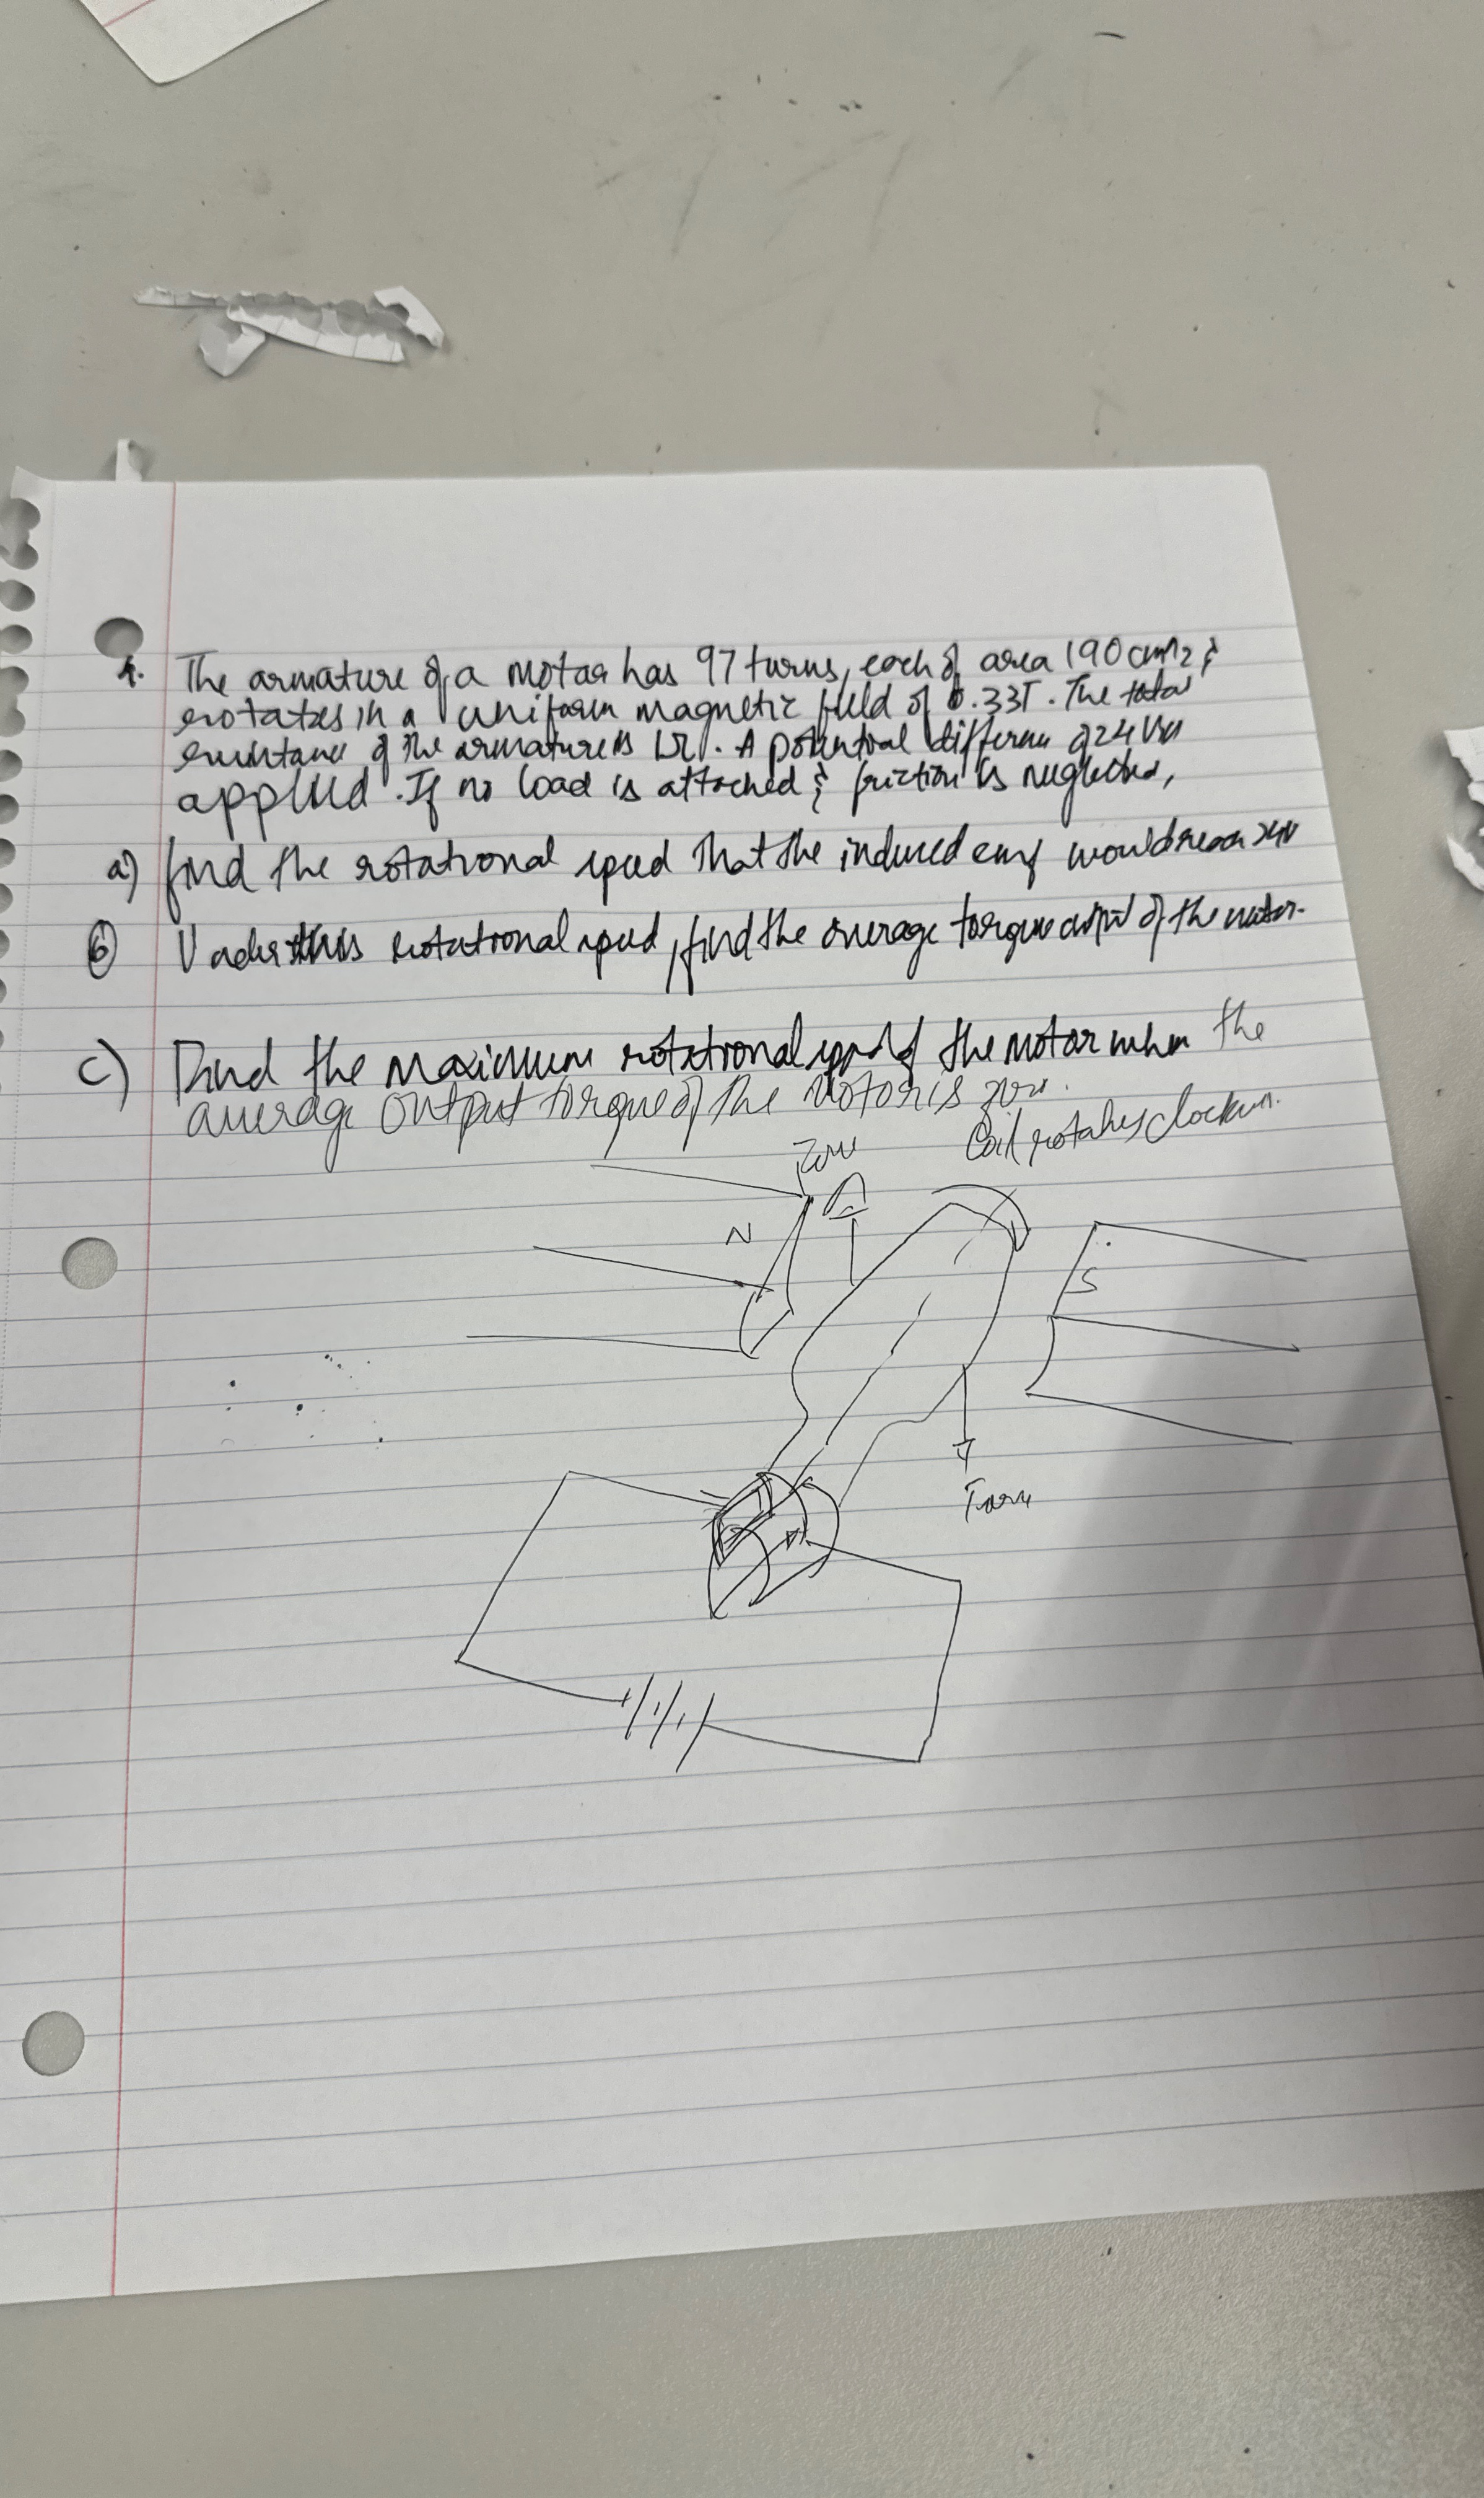 1. The armature of a motor has 97 turns, each of area 190 cm^2 &
rotates in a uniform magnetic field of 0.33T. The total
resistance of the armature is . A potential difference of 24 V is
applied. If no load is attached & friction is neglected,
a) find the rotational speed that the induced emf would reach 24V
b) Under this rotational speed, find the average torque output of the motor.
c) Find the maximum rotational speed of the motor when the
average output torque of the motor is zero.
Coil rotates clockwise.
N
S